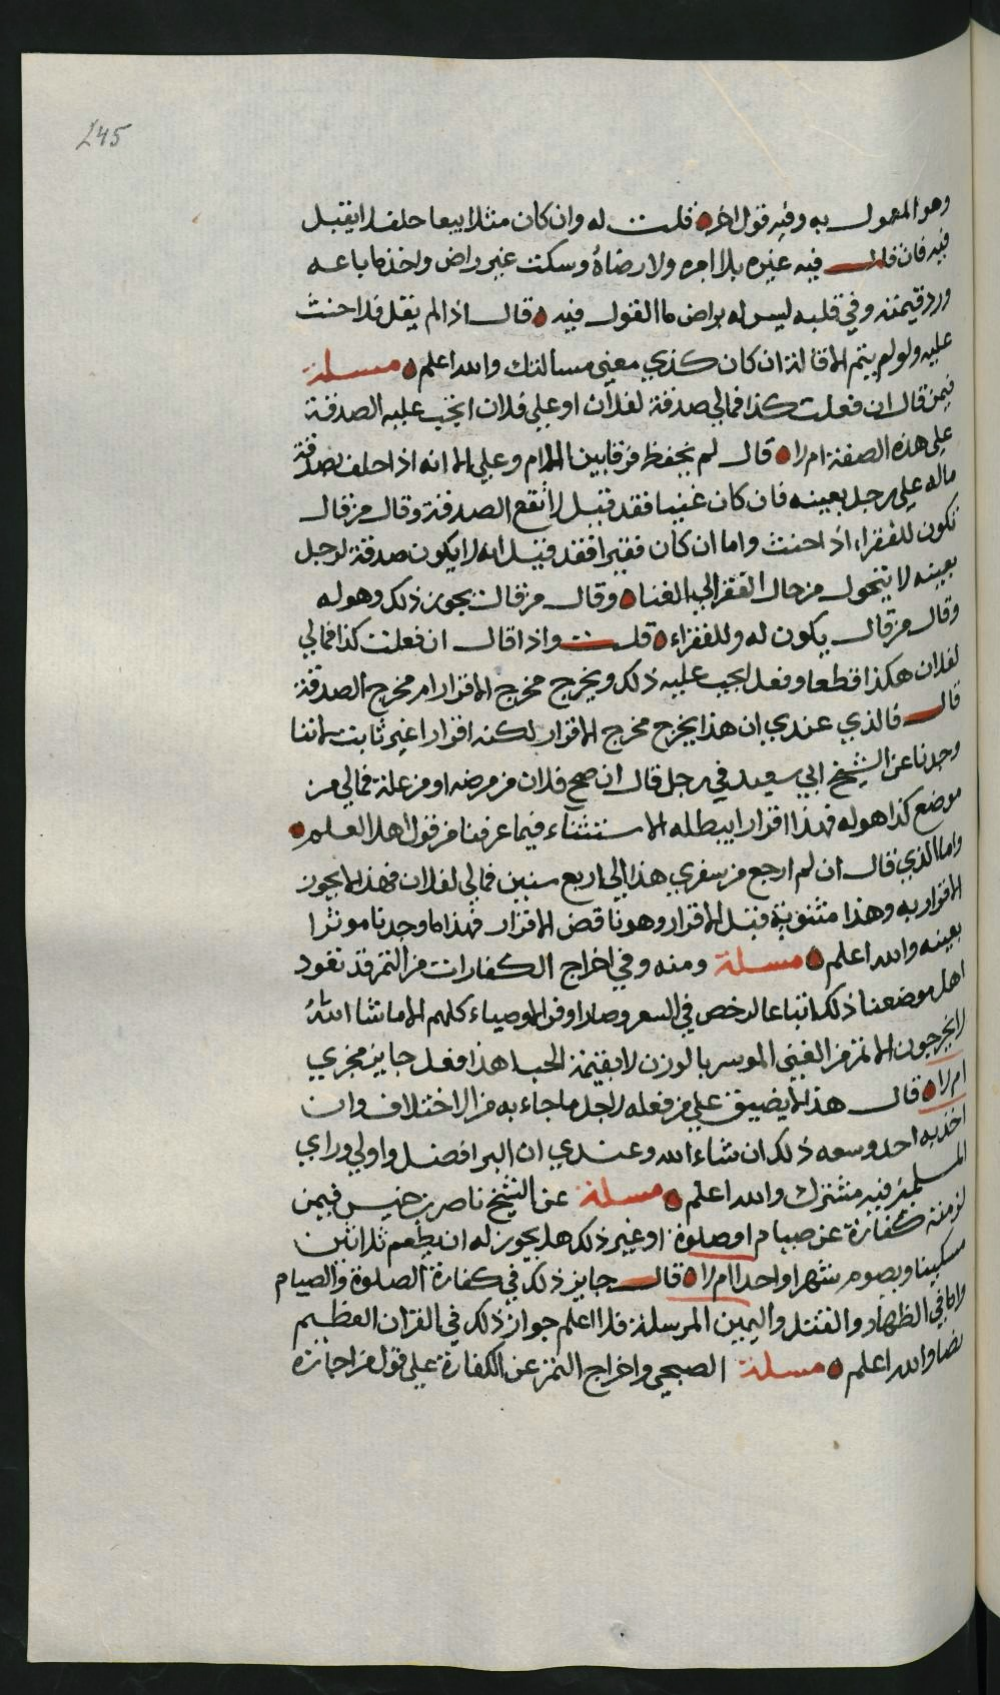 245
وهو المعمول به وفيه قول اخر قلت له وان كان مثلا بيعا حلف لا يقبل
فيه فان قبل فيه غيره بلا امره ولا رضاهُ وسكت غير راض واخذ ما باعه
ورد قيمته وفي قلبه ليس له براض ما القول فيه قال اذا لم يقل فلا حنث
عليه ولو لم يتم الاقالة ان كان كذي معنى مسالتك والله اعلم مسلة
فيمن قال ان فعلت كذا فمالي صدقة لفلان او على فلان ايجب عليه الصدقة
على هذه الصفة ام لا قال لم نحفظ فرقا بين اللام وعلى الا انه اذا حلف بصدقة
ماله على رجل بعينه فان كان غنيا فقد قيل لا تقع الصدقة وقال من قال
تكون للفقراء اذا حنث واما ان كان فقيرا فقد قيل انه لا يكون صدقة لرجل
بعينه لا يتحول من حال الفقر الى الغنا وقال من قال يجوز ذلك وهو له
وقال من قال يكون له وللفقراء قلت واذا قال ان فعلت كذا فمالي
لفلان هكذا قطعا وفعل ايجب عليه ذلك ويخرج مخرج الاقرار ام مخرج الصدقة
قال فالذي عندي ان هذا يخرج مخرج الاقرار لكنه اقرارا غير ثابت لاننا
وجدنا عن الشيخ ابي سعيد في رجل قال ان صح فلان من مرضه او من علة فمالي من
موضع كذا هو له فهذا اقرار ايبطله الاستثناء فيما عرفنا من قول اهل العلم
واما الذي قال ان لم ارجع من سفري هذا الى اربع سنين فمالي لفلان فهذا لا يجوز
الاقرار به وهذا مثنوية قبل الاقرار وهو ناقض الاقرار فهذا ما وجدنا موثرا
بعينه والله اعلم مسلة ومنه وفي اخراج الكفارات من التمر قد تعود
اهل موضعنا ذلك اتباعا لرخص في السعر وصاروا في الاوصياء كلهم الا ما شا اللهُ
لا يخرجون الا تمر من الغني الموسر بالوزن لا بقيمة الحب اهذا فعل جايز مجزي
ام لا قال هذا لا يضيق على من فعله لاجل ما جاء به من الاختلاف وان
اخذ به احد وسعه ذلك ان شاء الله وعندي ان البر افضل واولى وراي
المسلمين فيه مشترك والله اعلم مسلة عن الشيخ ناصر بن خميس فيمن
لزمته كفارة عن صيام او صلوة او غير ذلك هل يجوز له ان يطعم ثلاثين
مسكينا ويصوم شهرا واحدا ام لا قال جايز ذلك في كفارة الصلوة والصيام
واما في الظهار والقتل واليمين المرسلة فلا اعلم جواز ذلك في القران العظيم
نصا والله اعلم مسلة الصبحي واخراج التمر عن الكفارة على قول من اجازه